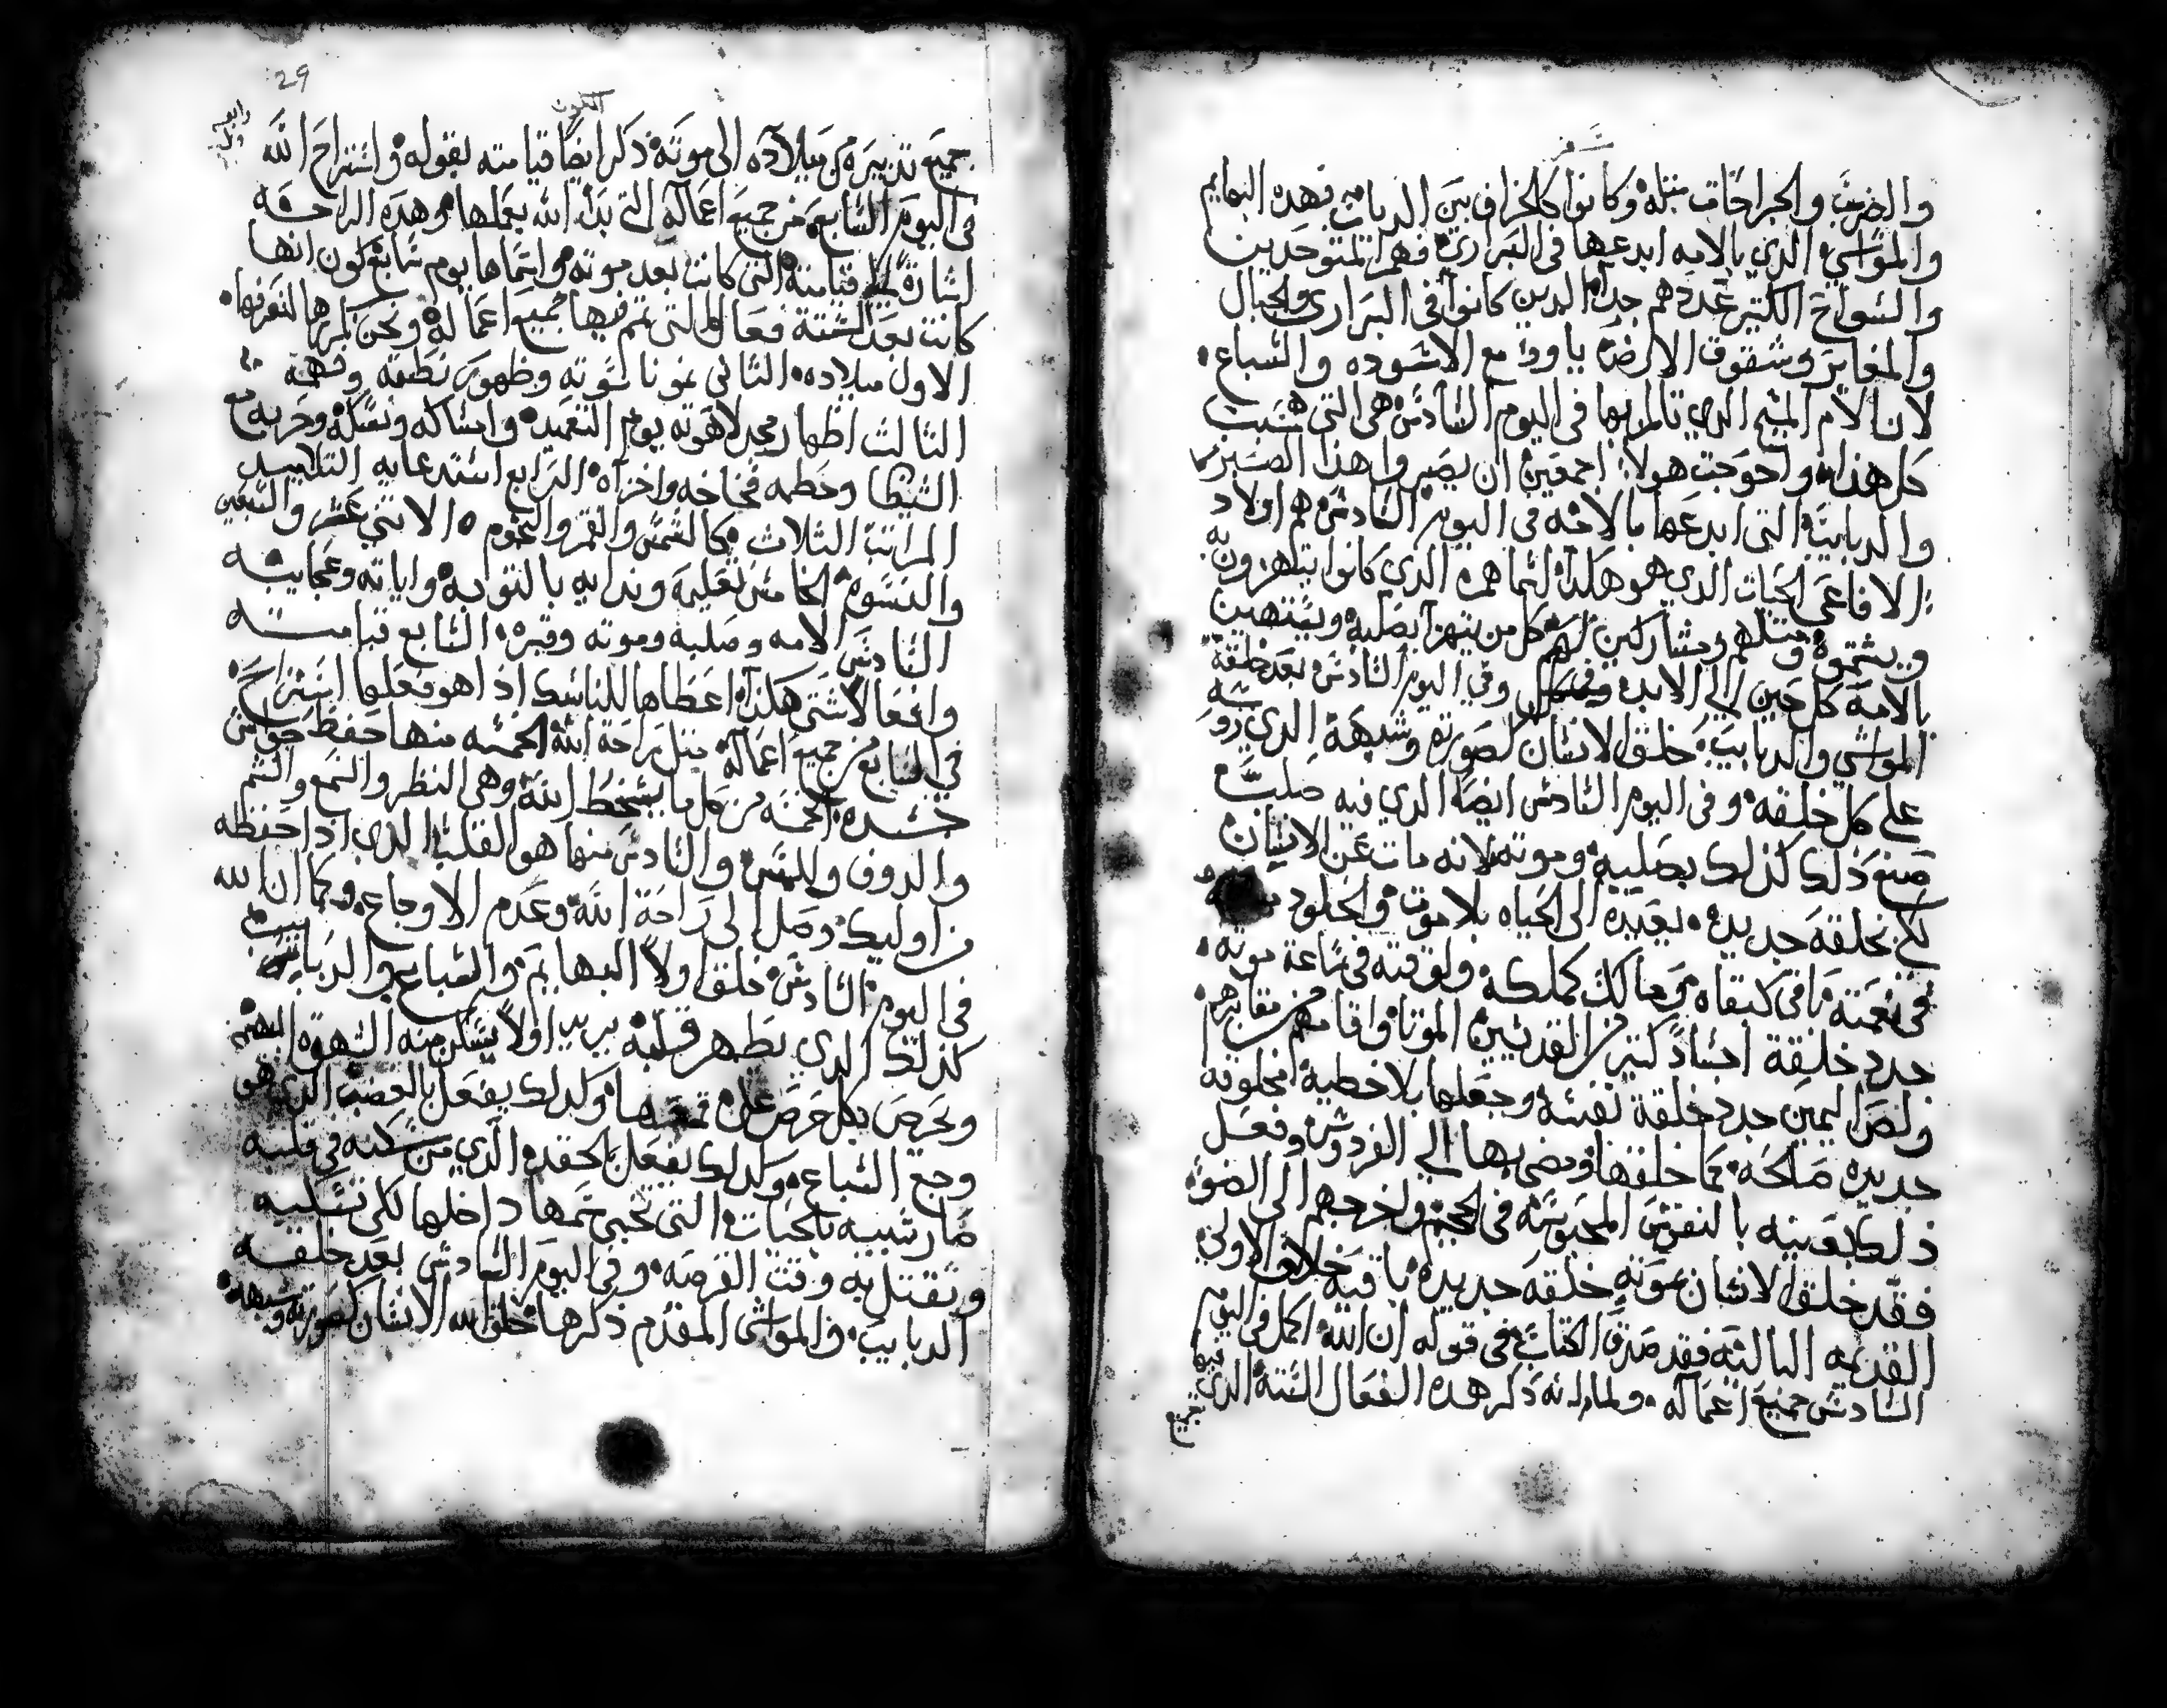 سفر
والضرب والجراحات مثله وكانوا كالخراف بين الدياب فهده البهايم
والمواشي الذي بالامه ابدعها في البراري فهم المتوحدين
والسواح الكتير عددهم جدا الدين كانوا في البراري والجبال
والمغاير وشقوق الارض ياووا مع الاسوده والسباع
لان الام المسيح الدي تالم بها في اليوم السادس هي التي سببت
كل هذا واحوجت هولاء اجمعين ان يصبروا هذا الصبر
والدبابيب التي ابدعها بالامه في اليوم السادس هم اولاد
الافاعي الحيات الدي هو هكذا
ويشتموه ومتلهم ومشاركين لهم كل من يتهزا بصليبه ويستهين
بالامه كل حين الي الابد وفي اليوم السادس بعد خلقة
المواشي والدبابيب خلق الانسان لصورته وشبهه الدي
علي كل خلقه وفي اليوم السادس ايضا الدي فيه صلب
صنع ذلك كذلك بصليبه وموته لانه مات عن الانسان
لكي يخلقه جديد يعيده الي الحياه بلا موت والخلود
في نعمته
جدد خلقة اجساد كتير من القديسين الموتا واقامهم من مقابرهم
ولص اليمين جدد خلقة نفسه وجعلها بلا خطيه مخلوقه
جديده صالحه كما خلقها ومضي بها الي الفردوس وفعل
ذلك بعينه بالنفوس المحبوسه في الجحيم واخرجهم الي الضو
فقد خلق الانسان بموته خلقه جديده باقيه خلاف الاولي
القديمه الباليه فقد صدق الكتاب في قوله ان الله اكمل في اليوم
السادس جميع اعماله ولما انه ذكر هده الفعال الستة الدي
29
التكوين
جميع تدبيره من ميلاده الي موته ذكر ايضا قيامته بقوله واستراح الله
في اليوم السابع من جميع اعماله التي بدا الله بعملها وهده الراحه
اشارة الي قيامته التي كانت بعد موته وانما ها يوم سابع لكون انها
كانت بعد الستة فعال التي تم فيها جميع اعماله ونحن نكررها لتعرفها
الاول ميلاده التاني نمو ناسوته وظهور نطقه وفهمه
التالت اظهار مجد لاهوته يوم التعميد وامساكه ونسكه وحربه مع
الشيطان وحطمه فخاخه واخزاه الرابع استدعايه التلاميد
المراتب الثلاث كالشمس والقمر والنجوم الاثني عشر والسبعين
والنسوه الخامس تعليمه وندايه بالتوبه واياته وعجايبه
السادس الامه وصلبه وموته وقبره السابع قيامته
وافعال شتي هكذا اعطاها للناسك اذا هو فعلها استراح
في السابع من جميع اعماله متل راحة الله الخمسه منها حفظ حواس
جسده الخمسه من كل ما يسخط الله وهي النظر والسمع والشم
والدوق واللمس والسادس منها هو القلب الذي اذا حفظه
من اوليك دخل الي راحة الله وعدم الاوجاع وكما ان الله
في اليوم السادس خلق اولا البهايم والسباع والدبابيب
كذلك الدي يطهر قلبه يريد اولا يسكن منه الشهوة
ويحرص بكل حرص علي قمعها وكدلك يفعل بالغضب الذي هو
وجع السباع وكدلك يفعل بالحقد الدي من سكنه في قلبه
صار شبيه بالحيات التي تخبي سمها داخلها لكي
وتقتل به وقت الفرصه وفي اليوم السادس بعد خلقه
الدبابيب والمواشي المقدم ذكرها خلق الله الانسان كصورته وشبهه